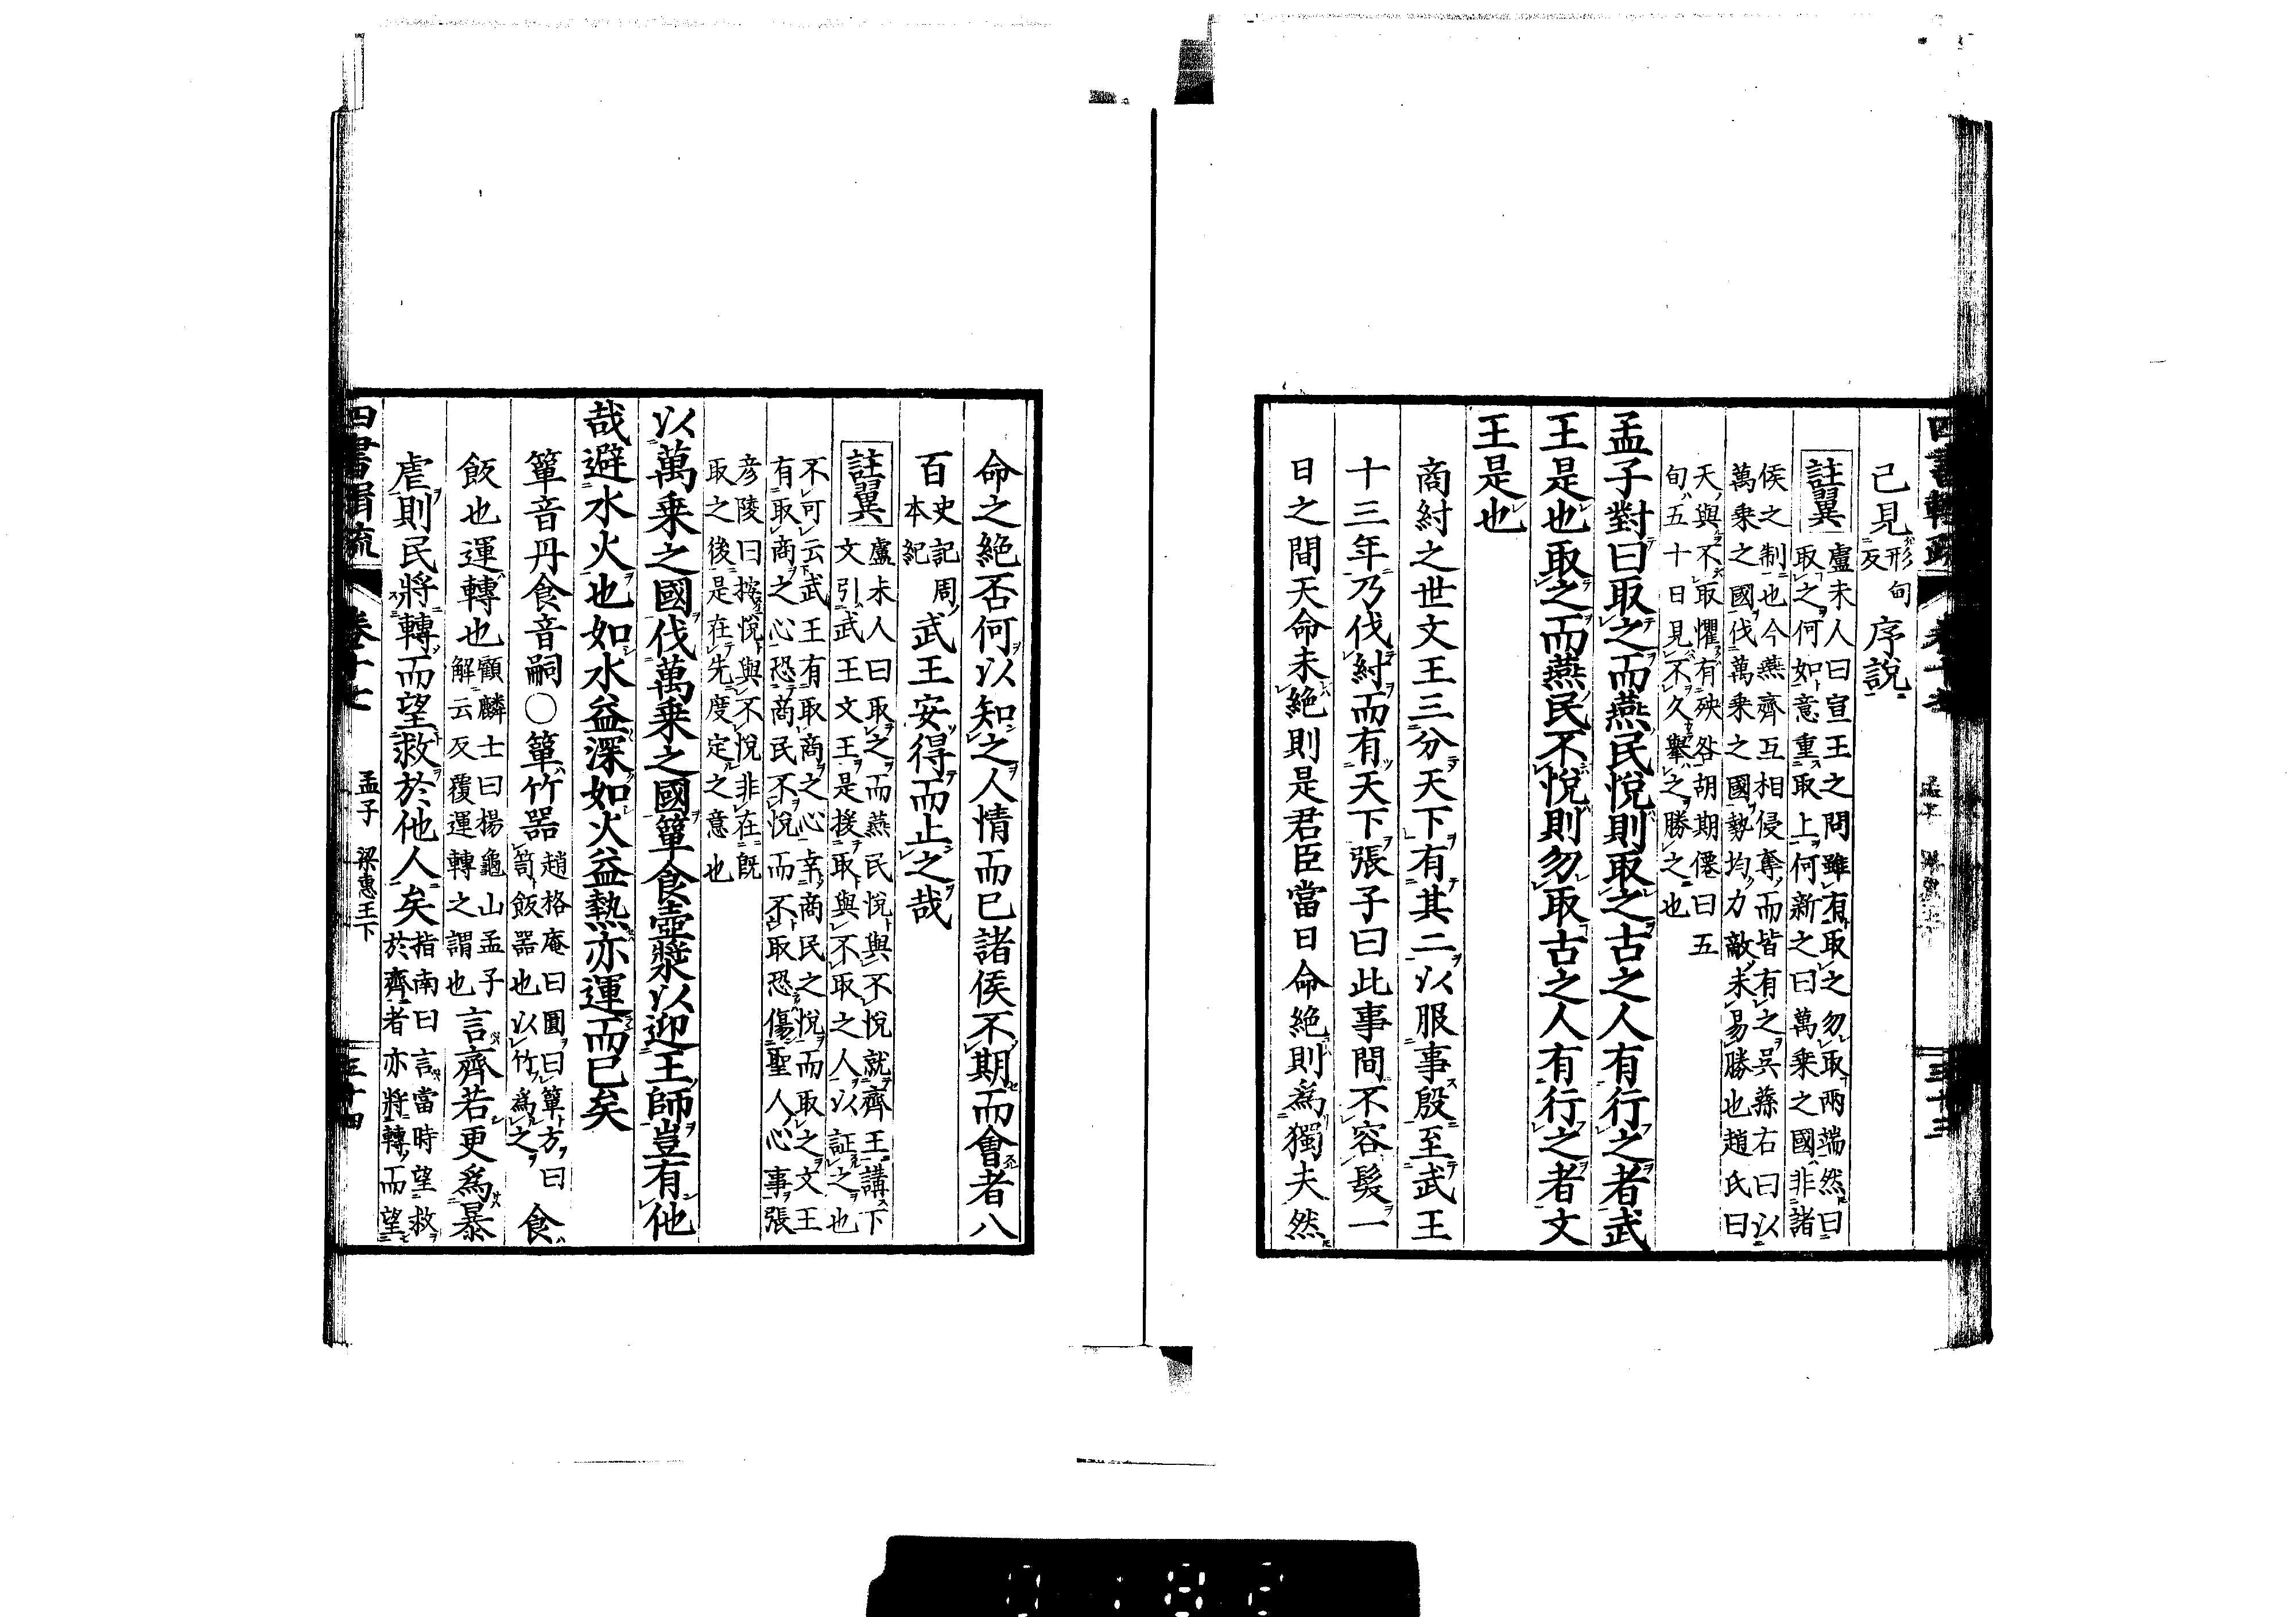 四書輯疏 卷十七 三十三
已見形甸反序說
註翼 盧未人曰宣王之問雖有取之勿取兩端然曰
取之何如意重取上何新之曰萬乗之國非諸
侯之制也今燕齊互相侵奪而皆有之吳蓀右曰以
萬乗之國伐萬乗之國勢均力敵未易勝也趙氏曰
天與不取懼有殃咎胡期僊曰五
旬五十日見不久擧之勝之也
孟子對曰取之而燕民悅則取之古之人有行之者武
王是也取之而燕民不悅則勿取古之人有行之者文
王是也
商紂之世文王三分天下有其二以服事殷至武王
十三年乃伐紂而有天下張子曰此事間不容髮一
日之間天命未絕則是君臣當日命絕則爲獨夫然
命之絕否何以知之人情而已諸侯不期而會者八
百史記周本紀武王安得而止之哉
註翼 盧未人曰取之而燕民悅與不悅就齊王講下
文引武王文王是援取與不取之人以証之也
不可云武王有取商之心幸商民之悅而取之文王
有取商之心恐商民不悅而不取恐傷聖人心事張
彦陵曰按悅與不悅非在既
取之後是在先度定之意也
以萬乗之國伐萬乗之國簞食壺漿以迎王師豈有他
哉避水火也如水益深如火益熱亦運而已矣
簞音丹食音嗣○簞竹器趙格庵曰圓曰簞方曰笥飯器也以竹爲之食
飯也運轉也顧麟士曰楊龜山孟子解云反覆運轉之謂也言齊若更爲暴
虐則民將轉而望救於他人矣指南曰言當時望救於齊者亦將轉而望
四書輯疏 卷十七 孟子 梁惠王下 三十四